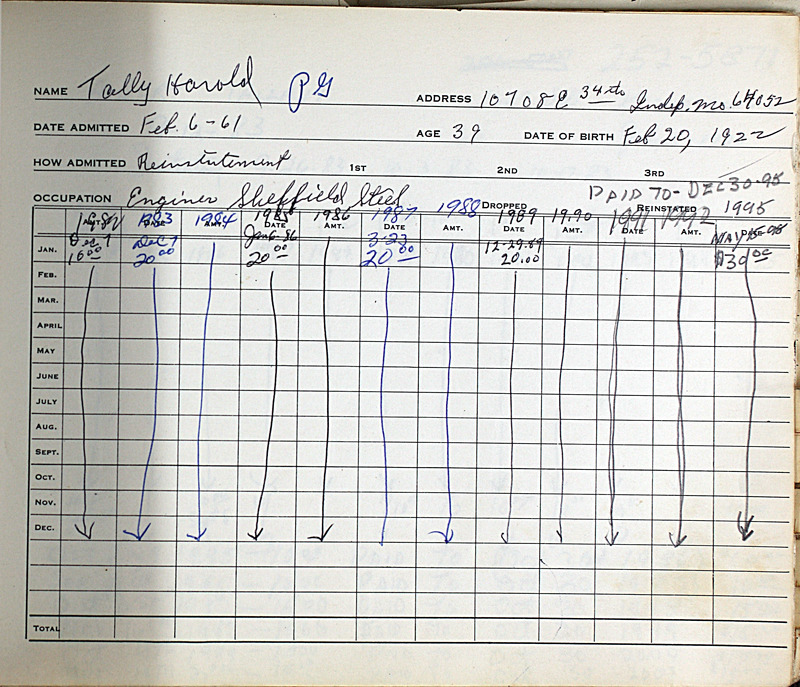 NAME Tally Harold PG
ADDRESS 10708 E 34th Indep, mo. 64052
DATE ADMITTED Feb. 6-61 AGE 39 DATE OF BIRTH Feb 20, 1922
HOW ADMITTED Reinstutement 1ST 2ND 3RD
PAID 70- DEC 30-95
OCCUPATION Enginer Sheffield Steel DROPPED REINSTATED 1995
1982 1983 1984 1985 1986 1987 1988 1989 1990 1991 1992
DATE AMT. DATE AMT. DATE AMT. DATE AMT. DATE AMT.
JAN. Dec 7 Dec 7 Jan 6-86 3-23 12-29-89 MAY
16.00 20.00 20.00 20.00 20.00 $39.00
FEB.
MAR.
APRIL
MAY
JUNE
JULY
AUG.
SEPT.
OCT.
NOV.
DEC.
TOTAL